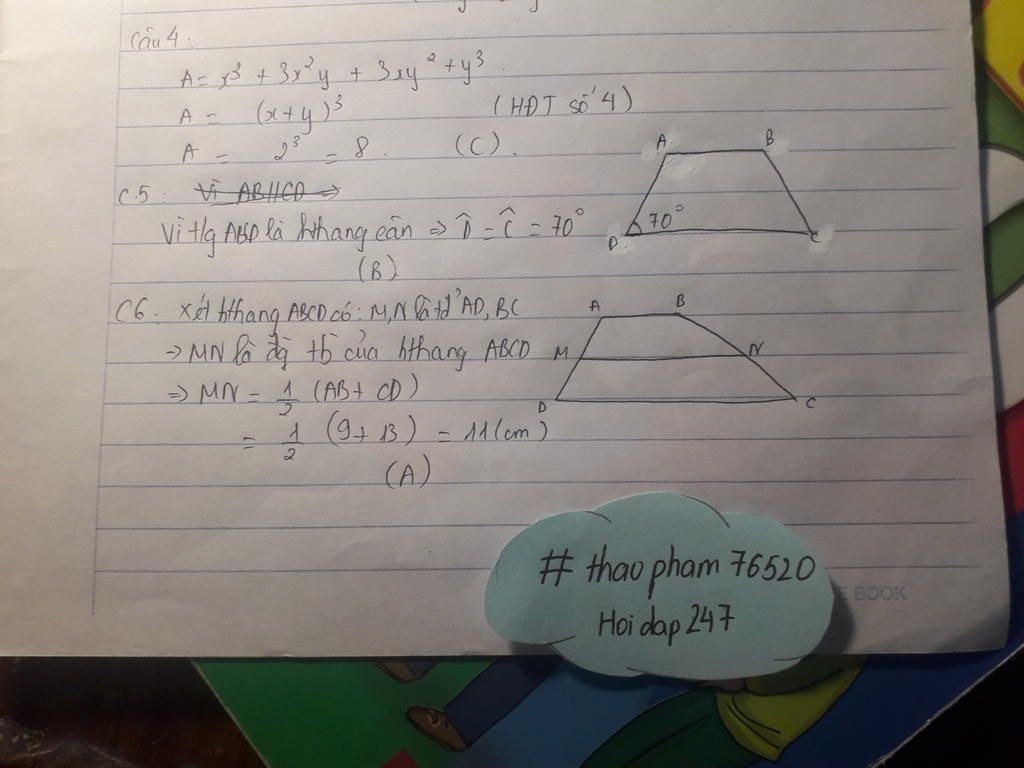 Câu 4:
A = x³ + 3x²y + 3xy² + y³.
A = (x+y)³ (HĐT số 4)
A = 2³ = 8. (C).
C.5: Vì AB//CD ⇒
Vì t/g ABCD là hthang cân ⇒ D̂ = Ĉ = 70°
(B)
A B
D 70° C
C6. Xét hthang ABCD có: M, N là tđ' AD, BC
⇒ MN là đg tb của hthang ABCD
⇒ MN = 1/2 (AB + CD)
= 1/2 (9 + 13) = 11 (cm)
(A)
A B
M N
D C
# thaopham 76520
Hoidap 247
E BOOK